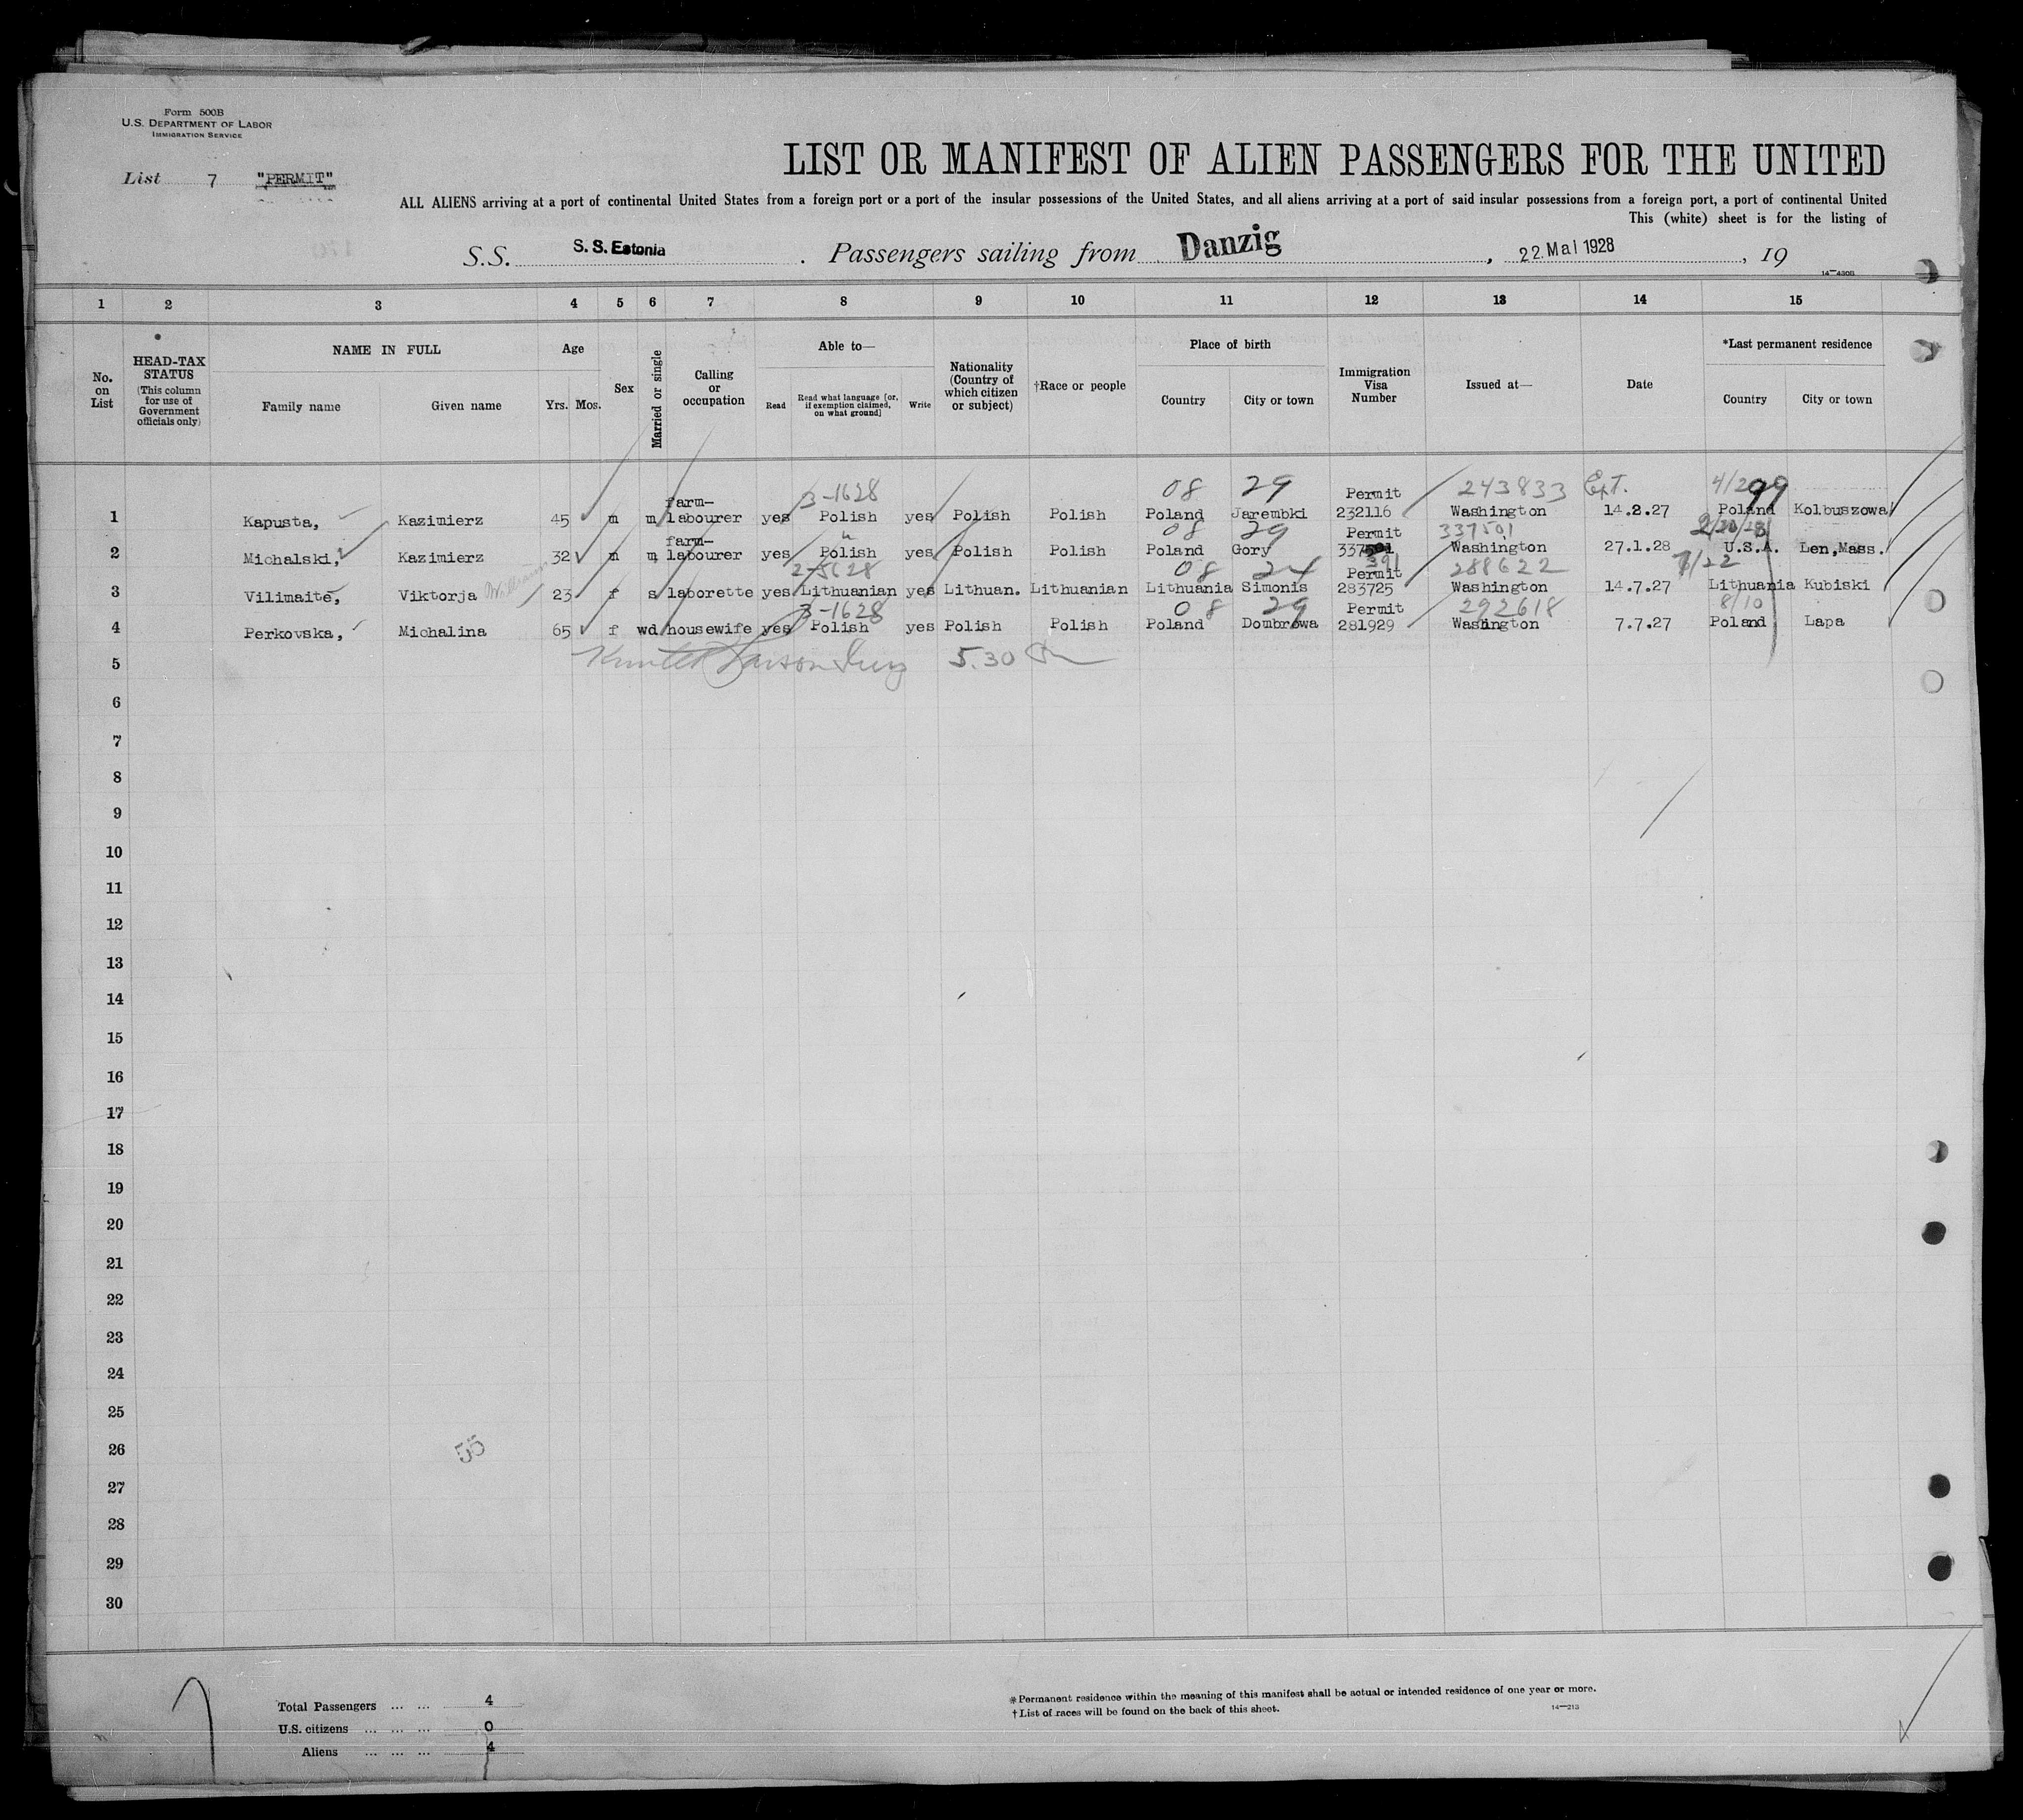 Form 500B
U.S. DEPARTMENT OF LABOR
IMMIGRATION SERVICE
List 7 "PERMIT"
LIST OR MANIFEST OF ALIEN PASSENGERS FOR THE UNITED
ALL ALIENS arriving at a port of continental United States from a foreign port or a port of the insular possessions of the United States, and all aliens arriving at a port of said insular possessions from a foreign port, a port of continental United
This (white) sheet is for the listing of
S.S. S. S. Estonia . Passengers sailing from Danzig , 22. Mai 1928 , 19
14—430B
1 2 3 4 5 6 7 8 9 10 11 12 13 14 15
No. on List
HEAD-TAX STATUS (This column for use of Government officials only)
NAME IN FULL
Family name Given name
Age
Yrs. Mos.
Sex
Married or single
Calling or occupation
Able to—
Read
Read what language [or, if exemption claimed, on what ground]
Write
Nationality (Country of which citizen or subject)
†Race or people
Place of birth
Country City or town
Immigration Visa Number
Issued at—
Date
*Last permanent residence
Country City or town
3-1628 08 29 243833 Ext. 4/29 99
1 Kapusta, Kazimierz 45 m m farm-labourer yes Polish yes Polish Polish Poland Jarembki Permit 232116 Washington 14.2.27 Poland Kolbuszowa
" 08 29 337501 2/20/28
2 Michalski, Kazimierz 32 m m farm-labourer yes Polish yes Polish Polish Poland Gory Permit 337501 391 Washington 27.1.28 U.S.A. Len,Mass.
2-5628 08 24 288622 7/22
3 Vilimaite, Viktorja 23 f s laborette yes Lithuanian yes Lithuan. Lithuanian Lithuania Simonis Permit 283725 Washington 14.7.27 Lithuania Kubiski
3-1628 08 29 292618 8/10
4 Perkovska, Michalina 65 f wd housewife yes Polish yes Polish Polish Poland Dombrowa Permit 281929 Washington 7.7.27 Poland Lapa
5 5.30
6
7
8
9
10
11
12
13
14
15
16
17
18
19
20
21
22
23
24
25
26
27
28
29
30
55
Total Passengers ... ... 4
U.S. citizens ... ... ... 0
Aliens ... ... ... 4
*Permanent residence within the meaning of this manifest shall be actual or intended residence of one year or more.
†List of races will be found on the back of this sheet.
14—213